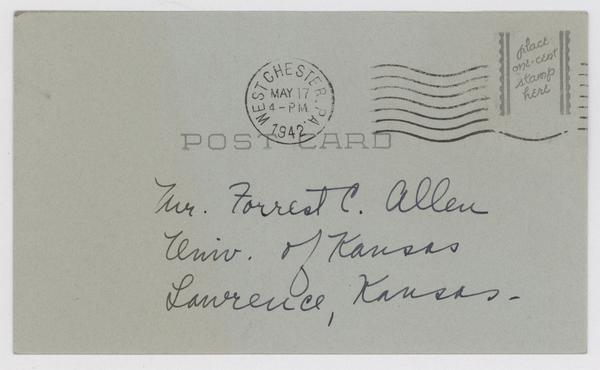 WEST CHESTER, PA.
MAY 17
4-PM
1942
place
one-cent
stamp
here
POST CARD
Mr. Forrest C. Allen
Univ. of Kansas
Lawrence, Kansas-